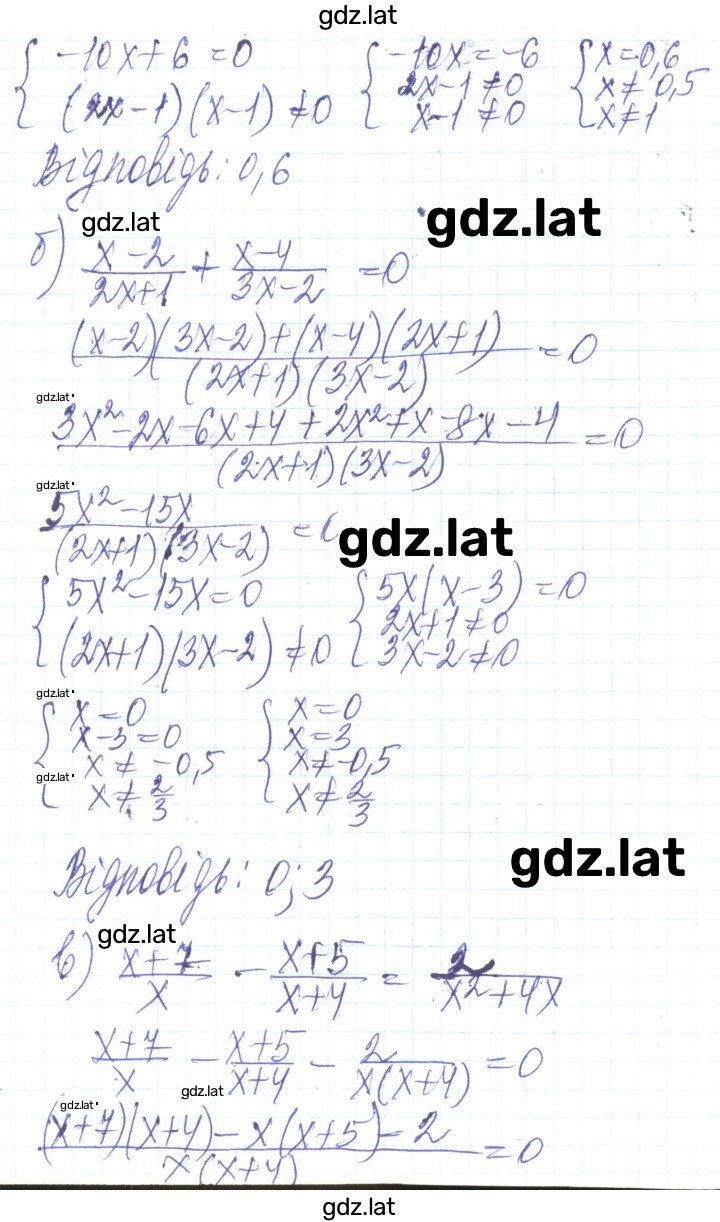 gdz.lat
{ -10x+6=0 { -10x=-6 { x=0,6
(2x-1)(x-1)≠0 2x-1≠0 x≠0,5
x-1≠0 x≠1
Відповідь: 0,6
gdz.lat gdz.lat
б) (x-2)/(2x+1) + (x-4)/(3x-2) =0
((x-2)(3x-2)+(x-4)(2x+1))/((2x+1)(3x-2)) =0
gdz.lat
(3x²-2x-6x+4+2x²+x-8x-4)/((2x+1)(3x-2)) =0
gdz.lat
(5x²-15x)/((2x+1)(3x-2)) =
gdz.lat
{ 5x²-15x=0 { 5x(x-3)=0
(2x+1)(3x-2)≠0 2x+1≠0
3x-2≠0
gdz.lat
{ x=0 { x=0
x-3=0 x=3
x≠-0,5 x≠-0,5
gdz.lat
x≠2/3 x≠2/3
Відповідь: 0; 3
gdz.lat
gdz.lat
в) (x+7)/x - (x+5)/(x+4) = 2/(x²+4x)
(x+7)/x - (x+5)/(x+4) - 2/(x(x+4)) =0
gdz.lat
gdz.lat
((x+7)(x+4)-x(x+5)-2)/(x(x+4)) =0
gdz.lat